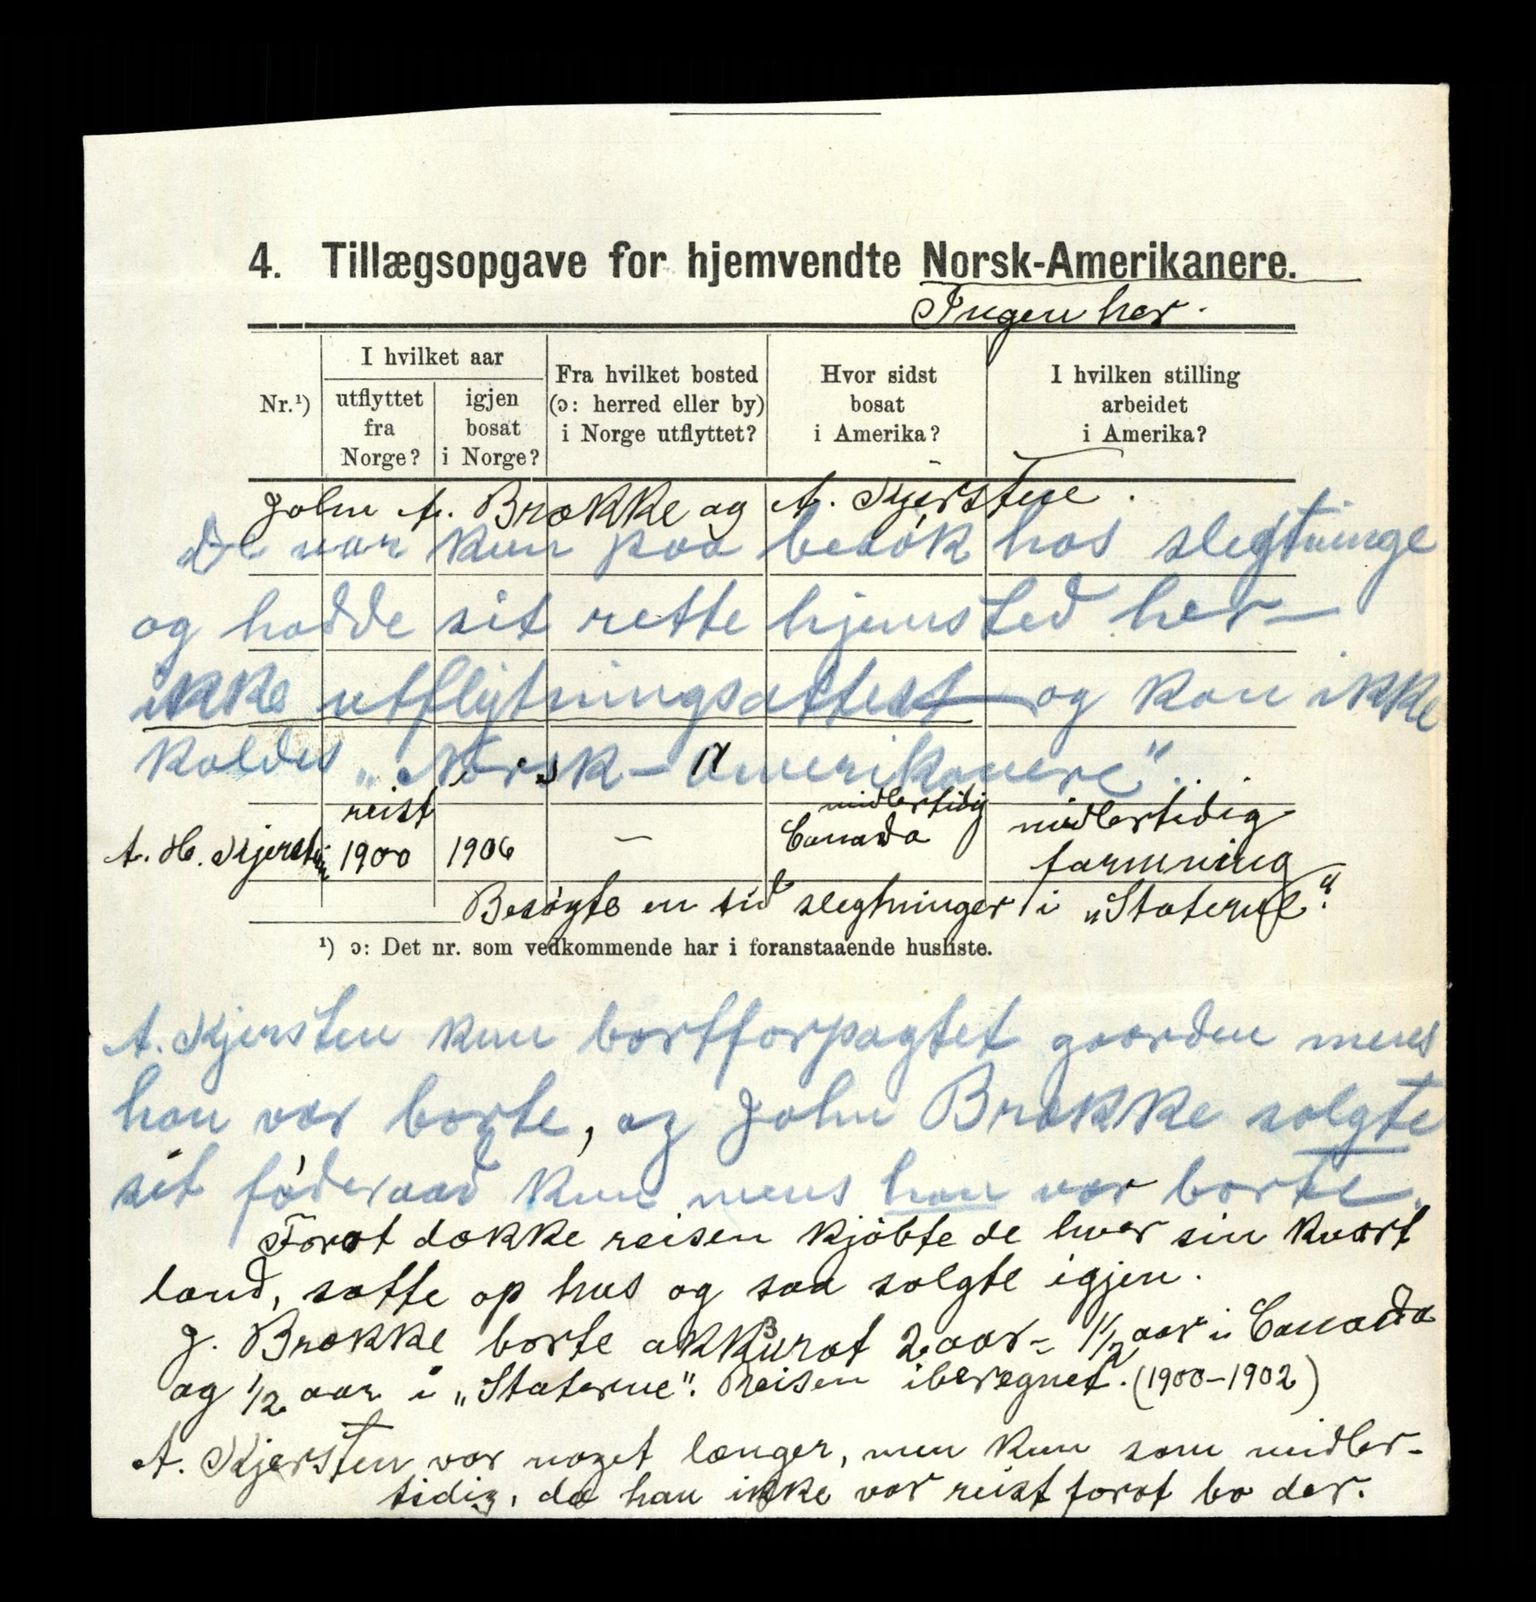 4. Tillægsopgave for hjemvendte Norsk-Amerikanere.
Ingen her.
Nr.¹)
I hvilket aar
utflyttet
fra
Norge?
igjen
bosat
i Norge?
Fra hvilket bosted
(ɔ: herred eller by)
i Norge utflyttet?
Hvor sidst
bosat
i Amerika?
I hvilken stilling
arbeidet
i Amerika?
John A. Brække og A. Kjersten.
De var kun paa besøk hos slegtninge
og hadde sit rette hjemsted her—
ikke utflytningsattest — og kan ikke
kaldes „Norsk-Amerikanere".
A. H. Kjersten reist 1900 1906 — midlertidig Canada midlertidig farmning
Besøgte en tid slegtninger i „Staterne".
¹) ɔ: Det nr. som vedkommende har i foranstaaende husliste.
A. Kjersten kun bortforpagtet gaarden mens
han var borte, og John Brække solgte
sit føderaad kun mens han var borte.
Forat dække reisen kjøbte de hver sin kvart
land, satte op hus og saa solgte igjen.
J. Brække borte akkurat 2 aar = 1½ aar i Canada
og ½ aar i „Staterne". Reisen iberegnet. (1900–1902)
A. Kjersten var noget længer, men kun som midler-
tidig, da han ikke var reist forat bo der.